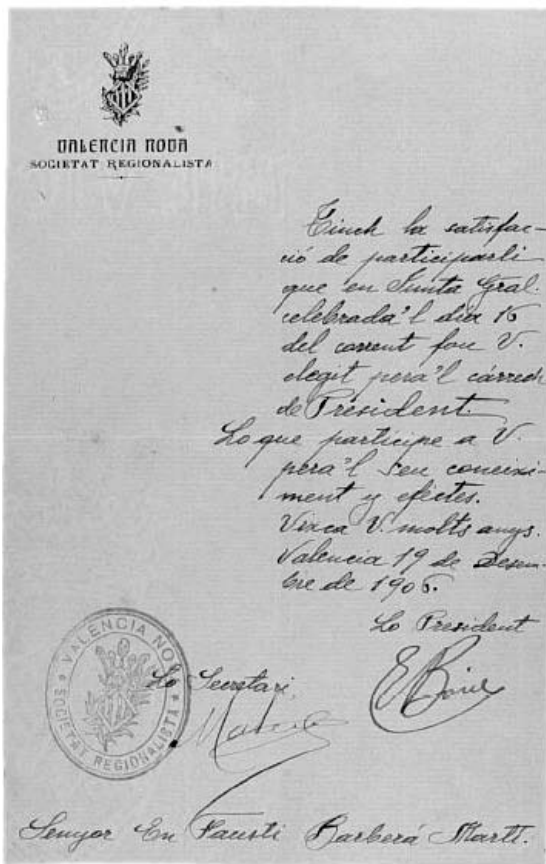 VALENCIA NOVA
SOCIETAT REGIONALISTA
Tinch la satisfac-
ció de participarli
que en Junta Gral.
celebrada'l dia 16
del corrent fou V.
elegit pera'l cárrech
de President.
Lo que participe a V.
pera'l seu coneixi-
ment y efectes.
Vixca V. molts anys.
Valencia 19 de Desem-
bre de 1906.
Lo President
Lo Secretari,
VALENCIA NOVA
SOCIETAT REGIONALISTA
Senyor En Faustí Barberá Martí.